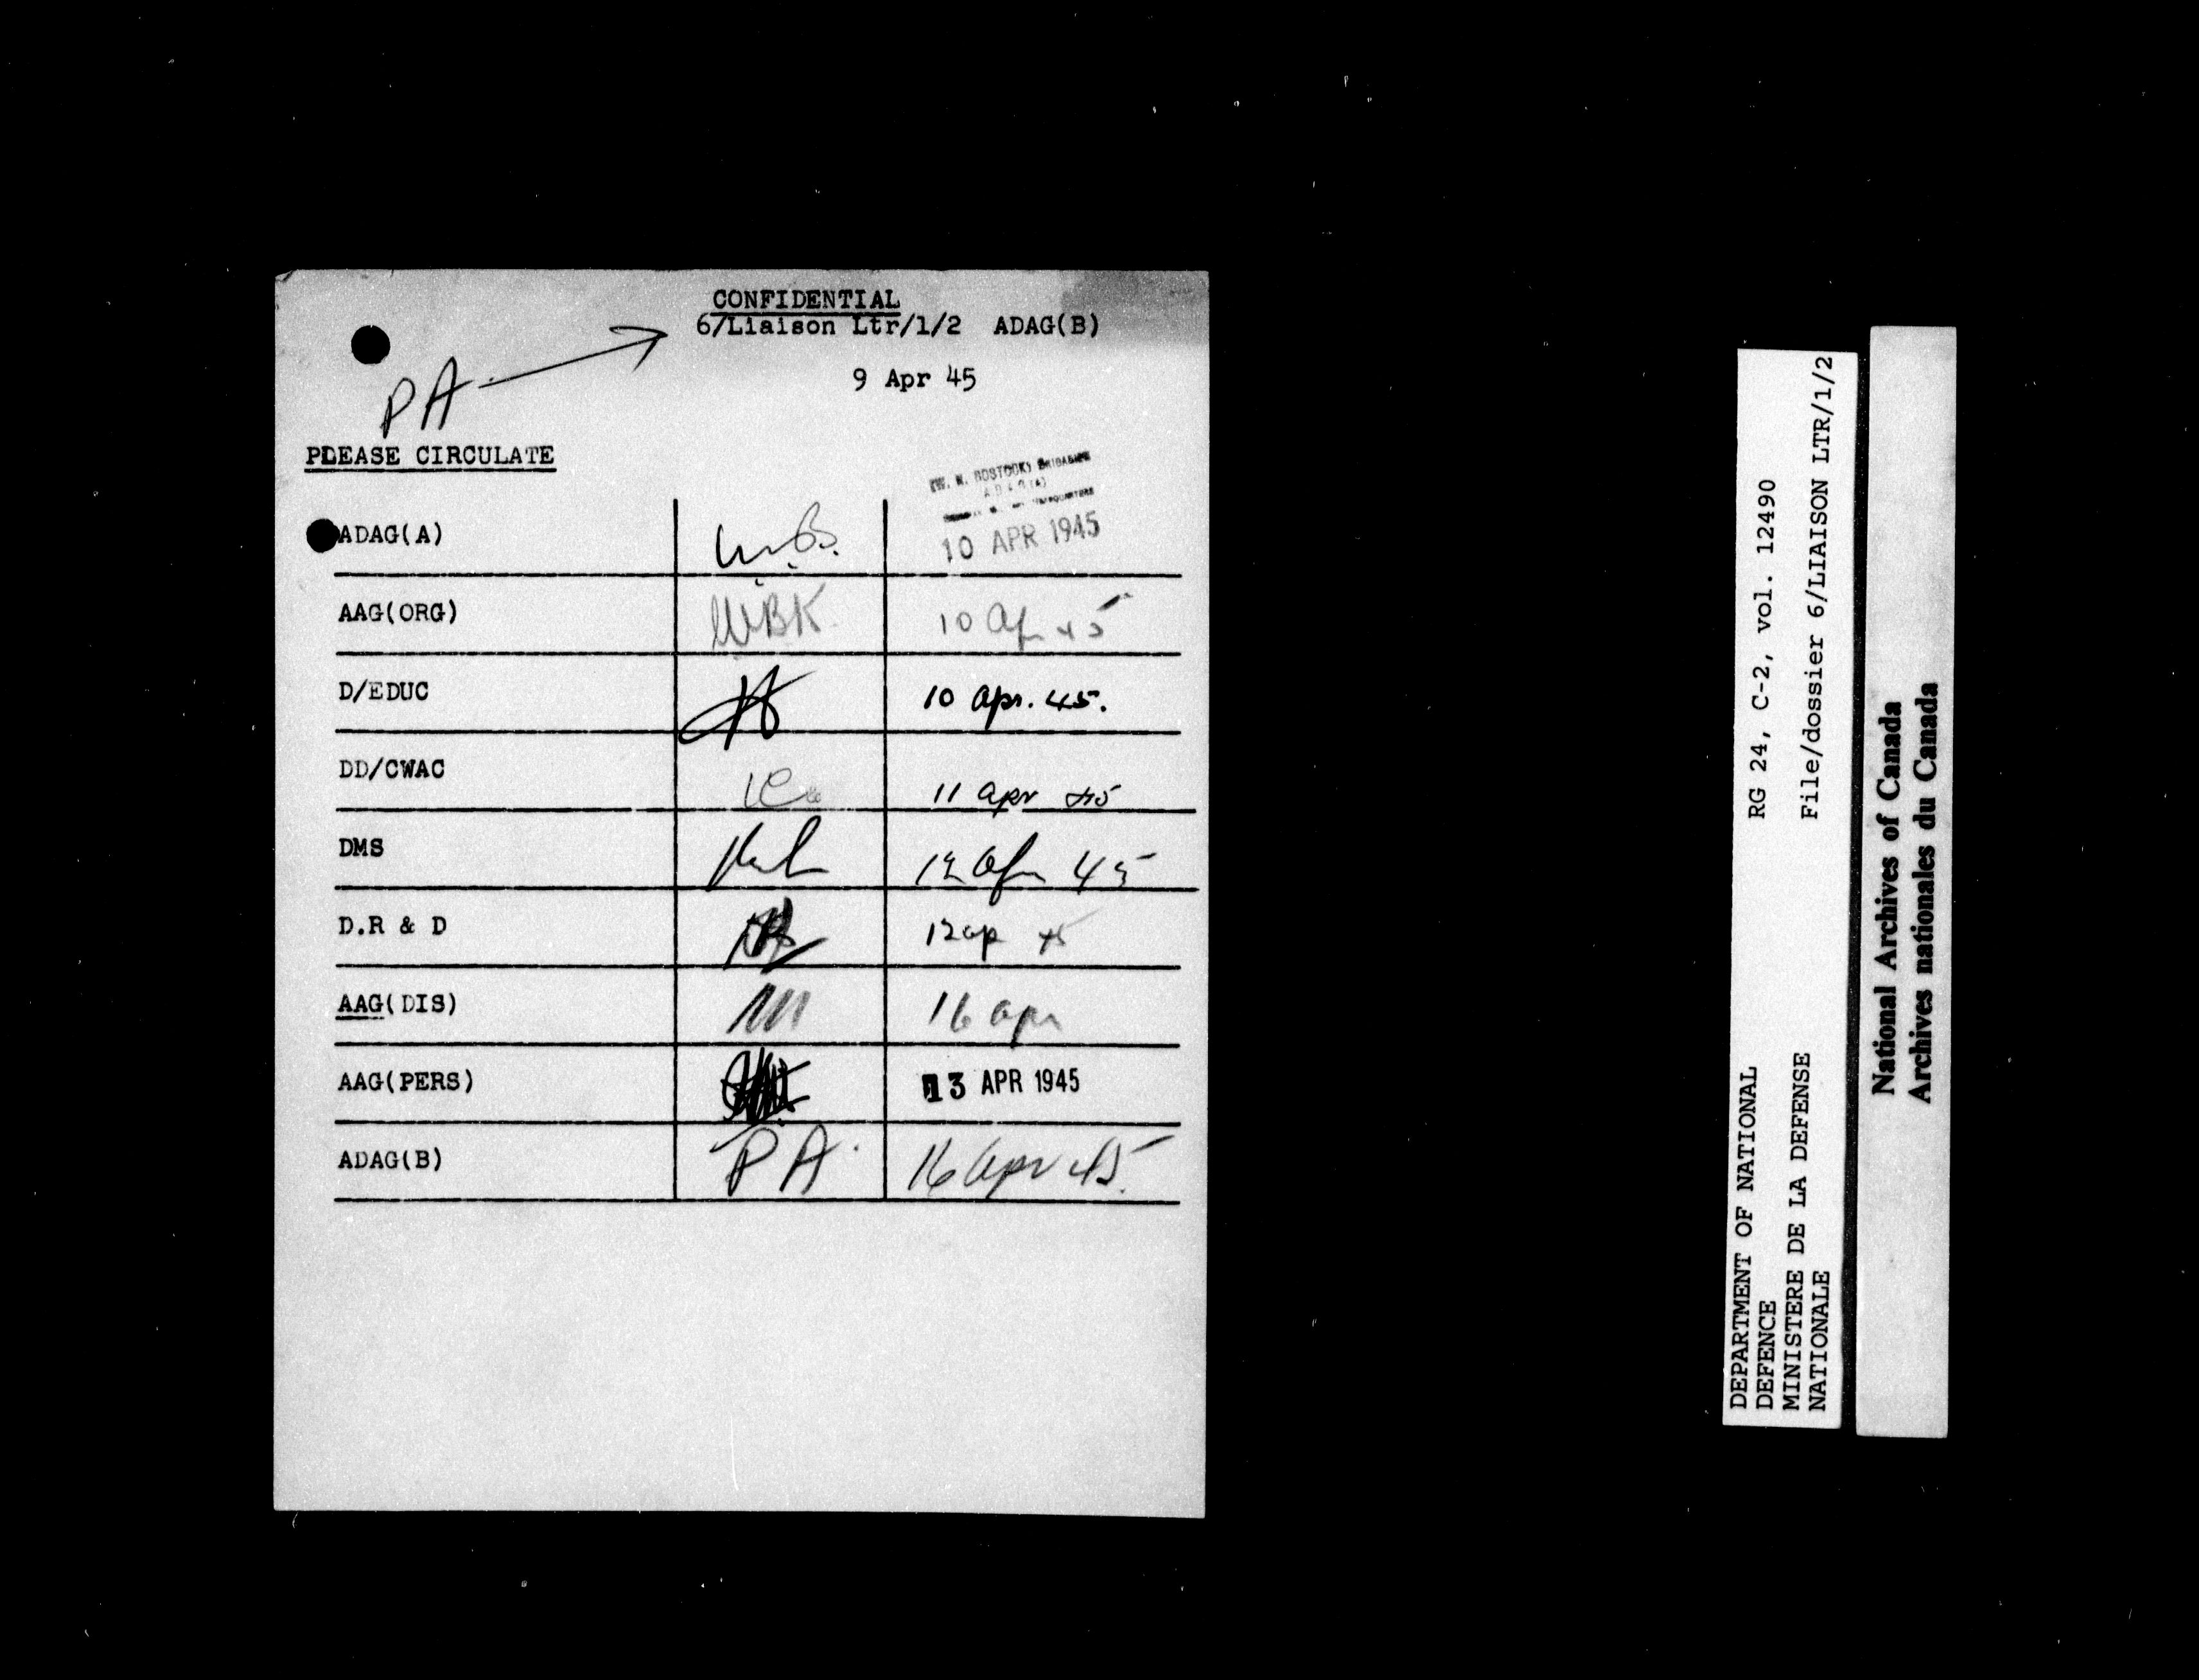 CONFIDENTIAL
6/Liaison Ltr/1/2 ADAG(B)
9 Apr 45
PA
PLEASE CIRCULATE
(W. W. BOSTOCK) BRIGADIER
ADAG(A)
HEADQUARTERS
ADAG(A) 10 APR 1945
AAG(ORG) WBK 10 Apr 45
D/EDUC 10 Apr. 45.
DD/CWAC 11 Apr 45
DMS 12 Apr 45
D.R & D 12 Ap 45
AAG(DIS) 16 Apr
AAG(PERS) 13 APR 1945
ADAG(B) PA. 16 Apr 45.
DEPARTMENT OF NATIONAL
DEFENCE
MINISTERE DE LA DEFENSE
NATIONALE
RG 24, C-2, vol. 12490
File/dossier 6/LIAISON LTR/1/2
National Archives of Canada
Archives nationales du Canada